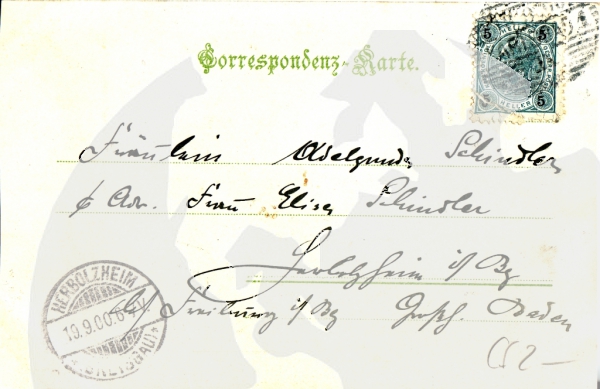 Correspondenz-Karte.
5 HELLER 5
5 HELLER 5
Fräulein Adelgunde Schindler
p Adr. Frau Elise Schindler
Herbolzheim i/Bg
bei Freiburg i/Bg Grosh. Baden
HERBOLZHEIM
19.9.00.6-7N
(BREISGAU)